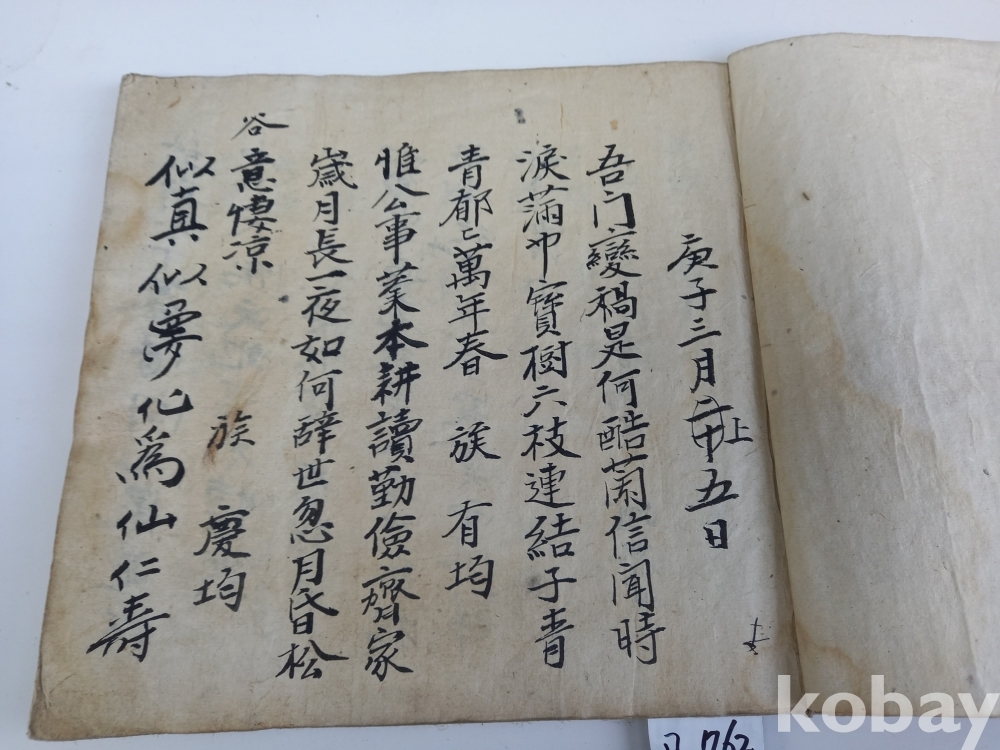 庚子三月二十五日
上
吾门變禍是何酷蘭信聞時
淚滿巾寶樹六枝連結子青
青郁〻萬年春 族 有均
惟公事業本耕讀勤儉齊家
歲月長一夜如何辭世忽月昏松
谷意悽凉 族 慶均
似真似夢化為仙仁壽
kobay